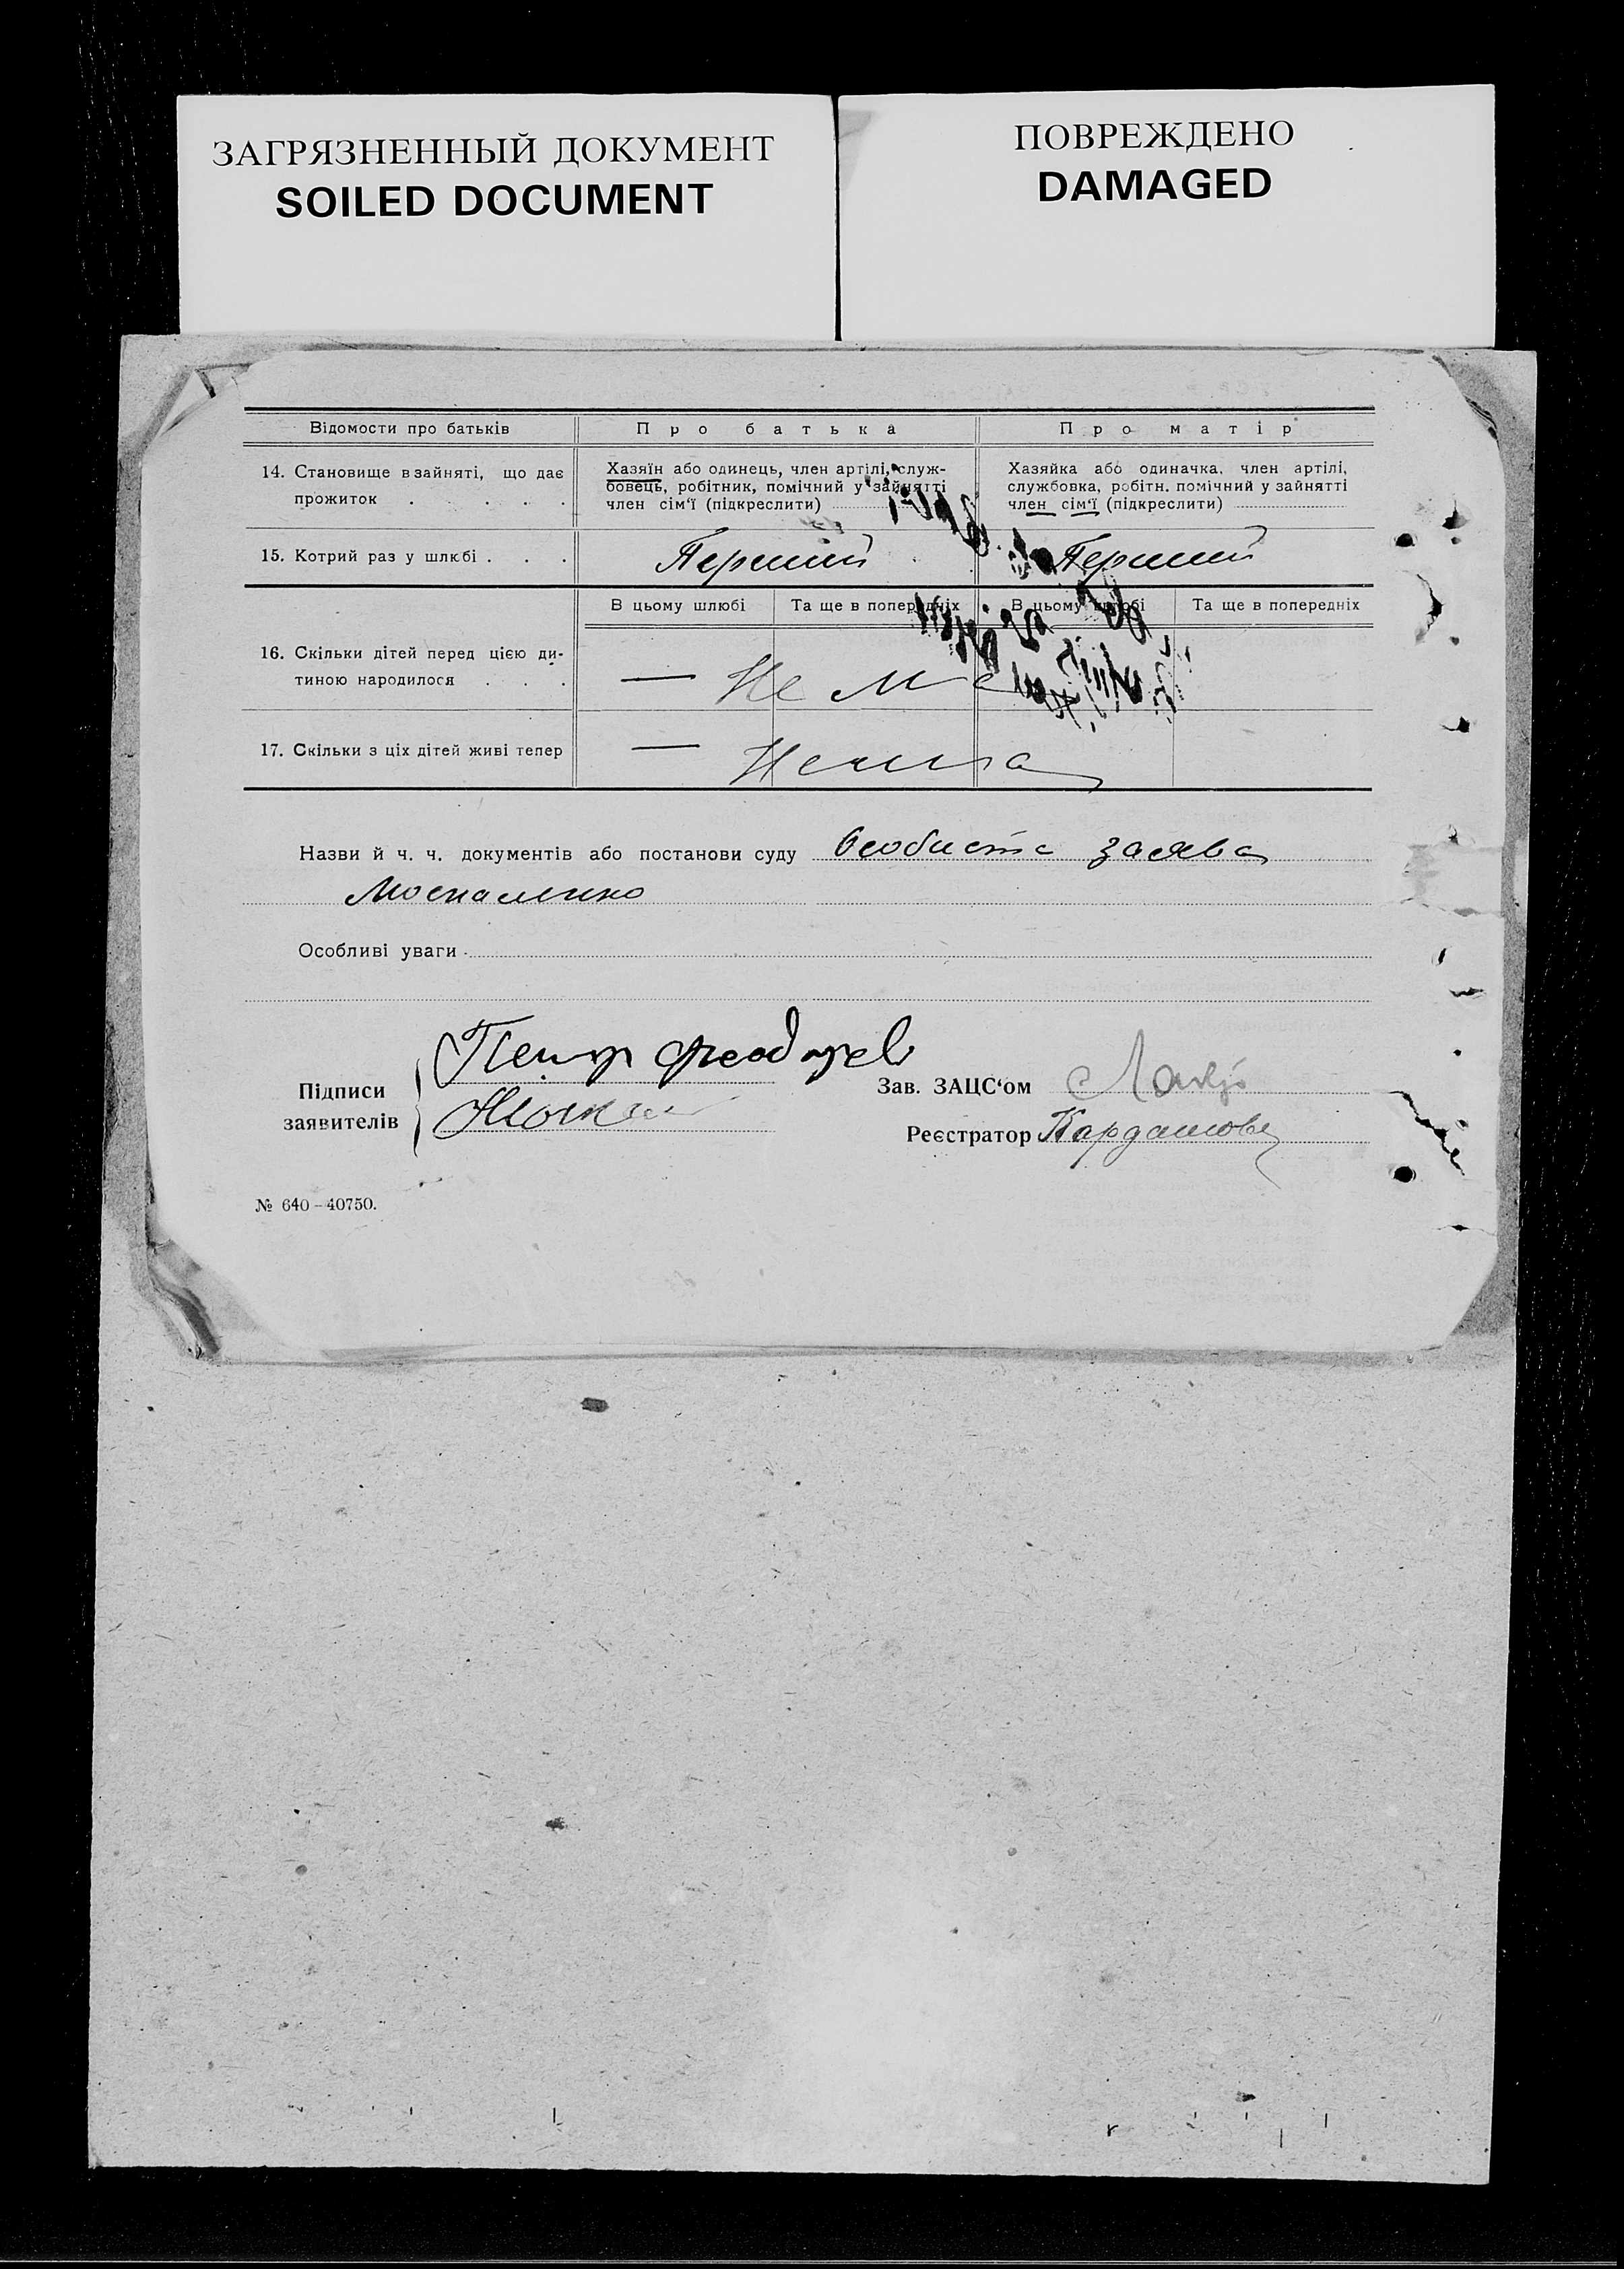 ЗАГРЯЗНЕННЫЙ ДОКУМЕНТ
SOILED DOCUMENT
ПОВРЕЖДЕНО
DAMAGED
Відомости про батьків
Про батька
Про матір
14. Становище в зайняті, що дає
прожиток . . . .
Хазяїн або одинець, член артілі, служ-
бовець, робітник, помічний у зайнятті
член сім‘ї (підкреслити)
Хазяйка або одиначка, член артілі,
службовка, робітн. помічний у зайнятті
член сім‘ї (підкреслити)
15. Котрий раз у шлюбі . . .
Перший
Перший
В цьому шлюбі
Та ще в попередніх
В цьому шлюбі
Та ще в попередніх
16. Скільки дітей перед цією ди-
тиною народилося . . .
— Не ма
17. Скільки з ціх дітей живі тепер
— Нема
Назви й ч. ч. документів або постанови суду Особиста заява
Москаленко
Особливі уваги
Підписи
заявителів
Зав. ЗАЦС‘ом
Реєстратор
№ 640–40750.